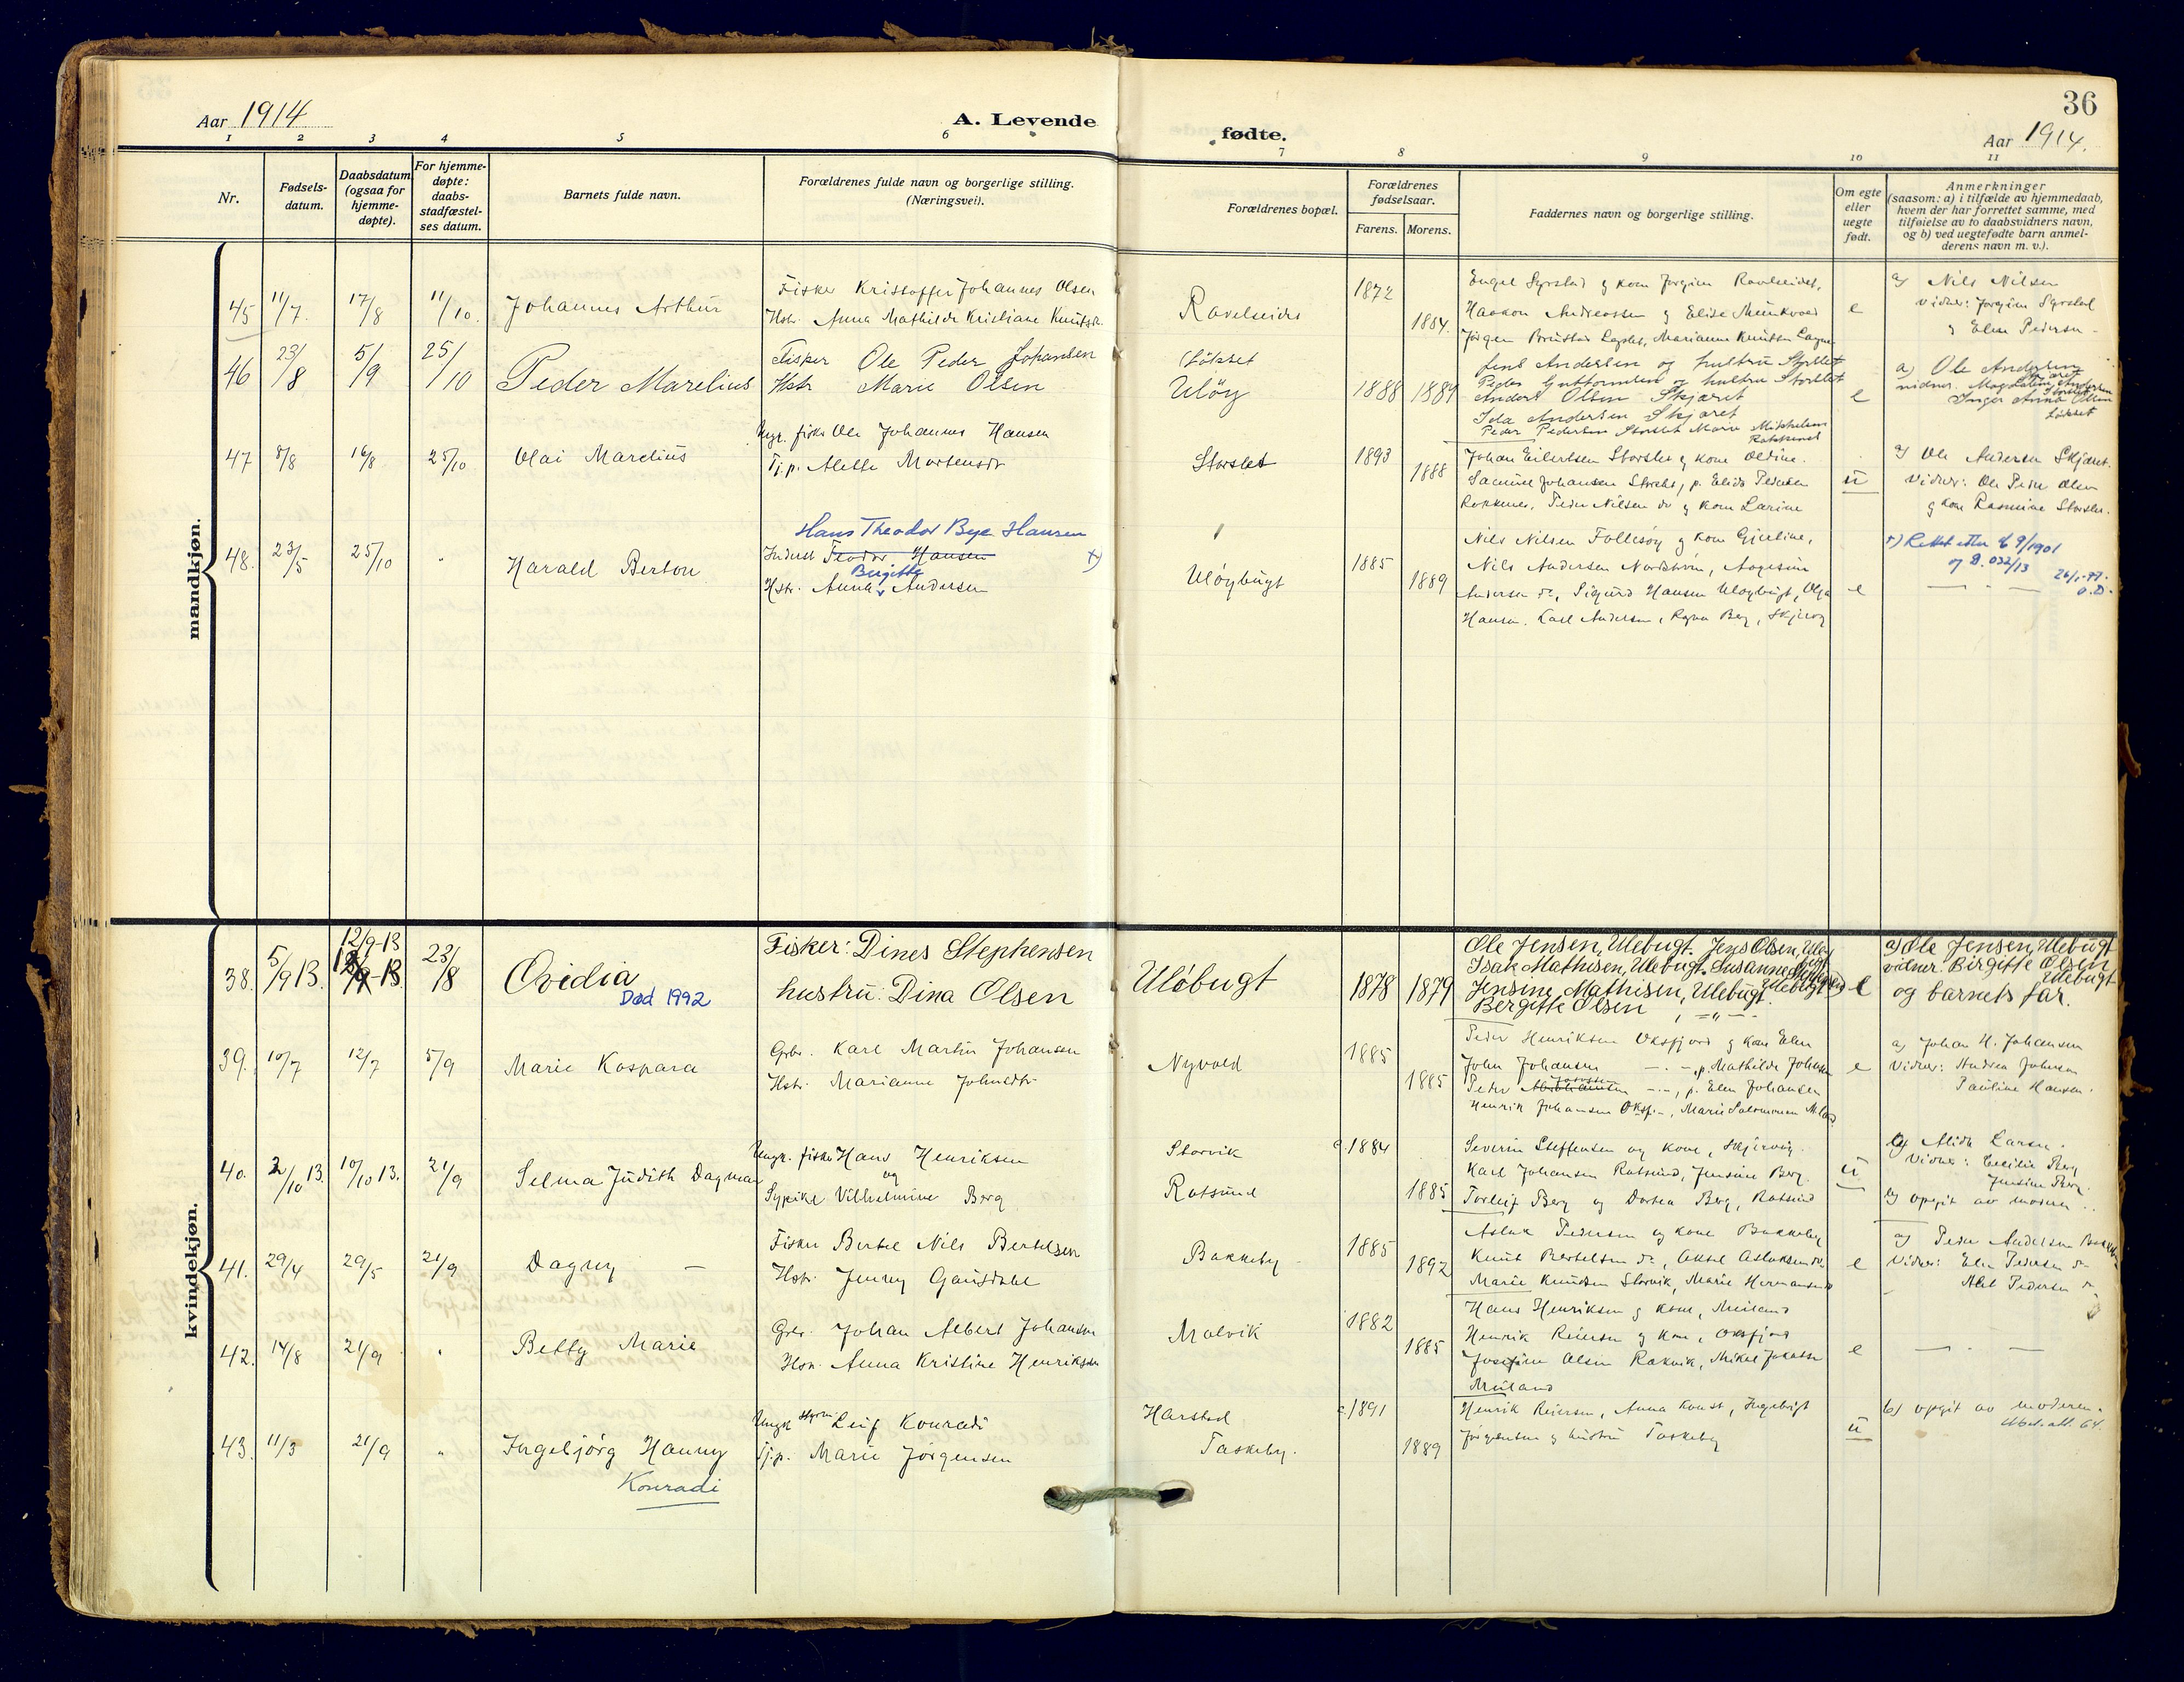 36
Aar 1914
A. Levende
fødte.
Aar 1914.
1 2 3 4 5 6 7 8 9 10 11
Nr.
Fødsels-
datum.
Daabsdatum
(ogsaa for
hjemme-
døpte).
For hjemme-
døpte:
daabs-
stadfæstel-
ses datum.
Barnets fulde navn.
Forældrenes fulde navn og borgerlige stilling.
(Næringsvei).
Forældrenes bopæl.
Forældrenes
fødselsaar.
Farens. Morens.
Faddernes navn og borgerlige stilling.
Om egte
eller
uegte
født.
Anmerkninger
(saasom: a) i tilfælde av hjemmedaab,
hvem der har forrettet samme, med
tilføielse av to daabsvidners navn,
og b) ved uegtefødte barn anmel-
derens navn m. v.).
mandkjøn.
45 11/7. 17/8 11/10. Johannes Arthur
Fisker Kristoffer Johannes Olsen
Hstr. Anna Mathilde Kristiane Knutsdr.
Ravelseidet
1872
1884.
Haakon Andreassen g Elise
e
a) Nils Nilsen
Vidner:
g Elen Pedersen
46 23/8 5/9 25/10 Peder Marelius
Fisker Ole Peder Johansen
Hstr Marie Olsen
Løkset
Uløy
1888 1889
Jens Andersen og hustru Storslet
Peder Guttormsen og hustru Storslet
Anders Olsen Skjæret
Ida Andersen Skjæret
Peder Pedersen Storslet Marie Mikkelsen
e
a) Ole Andersen
Skjæret
vidner. Magdalena Andersen
Inger Anna Olsen
Løkset
47 8/8 16/8 25/10 Olai Marelius
Ungk. fisker Ole Johannes Hansen
Tj.p. Alette Mortensdr
Storslet
1893
1888
Johan Eilertsen Storslet g kone Oldine.
Samuel Johansen Storslet, p. Elida Pedersen
Rokkenes, Peder Nilsen do g kone Larine
u
a) Ole Andersen Skjæret.
Vidner: Ole Peder Olsen
g kone Rasmine Storslet.
48. 23/5 25/10 " Harald Berton
Hans Theodor Bye Hansen
Inderst Teodor Hansen
x)
Birgitte
Hstr. Anna Andersen
Uløybugt
1885
1889
Nils Nilsen Follesøy g kone Gjertine,
Nils Andersen Nordstrøm,
Andersen do, Sigurd Hansen Uløybugt, Olga
Hansen. Karl Andersen, Ragna Berg, Skjervøy
e
x) Rettet etter
kvindekjøn.
38. 5/9 13. 12/9-13 23/8 Ovidia
Død 1992
Fisker: Dines Stephensen
hustru: Dina Olsen
Uløbugt
1878 1879
Ole Jensen, Ulebugt. Jens Olsen, Uløy
Isak Mathisen, Ulebugt. Susanne Stephensen
Jensine Mathisen, Ulebugt. Ulebugt
Bergitte Olsen
e
a) Ole Jensen, Ulebugt
vidner. Birgitte Olsen
Ulebugt
og barnets far.
39. 10/7 12/7 5/9 Marie Kaspara
Grbr. Karl Martin Johansen
Hstr. Marianne Johnsdtr
Nyvold
1885
1885
Peder Henriksen Oksfjord g kone Elen
John Johansen - . - , p. Mathilde Johansen
Peder - . - , p. Elen Johansen
Henrik Johansen Oksf. - , Marie Salomonsen
e
a) Johan H. Johansen
Vidner: Andrea Johnsen
Pauline Hansen.
40. 2/10 13. 10/10 13. 21/9 Selma Judith Dagmar
Ungk. fisker Hans Henriksen
og
Sypike Vilhelmine Berg
Storvik
Rotsund
1884
1885
Severin Steffensen og kone, Skjervøy.
Karl Johansen Rotsund, Jensine Berg.
Torleif Berg og Dortea Berg, Rotsund
u
a) Alida Larsen.
Vidner: Cecilie Berg
Jensine Berg.
b) opgit av moderen.
41. 29/4 29/5 21/9 Dagny —
Fisker Bertel Nils Bertelsen
Hstr. Jenny Gausdahl
Bakkeby
1885
1892
Aslak Pedersen og kone Bakkeby
Knut Bertelsen do, Aksel Aslaksen do.
Marie Knudsen Storvik, Marie Hermansen
e
a) Peder Andersen Bakkeby
Vidner: Elen Pedersen do
Pedersen do
42. 14/8 21/9 " Betty Marie
Grbr. Johan Albert Johansen
Hstr. Anna Kristine Henriksen
Malvik
1882
1885
Hans Henriksen g kone, Meiland
Henrik Reiersen g kone, Oksfjord
Josefine Olsen Rakvik, Mikal
Meiland
e
— . —
43. 11/3 21/9 " Ingebjørg Hanny
Konradi
Ungk. styrm. Leif Konradi
Tj.p. Marie Jørgensen
Harstad
Taskeby.
1891
1889
Henrik Reiersen, Anna Konst, Ingebrigt
Jørgensen g hustru Taskeby
u
b) opgit av moderen.